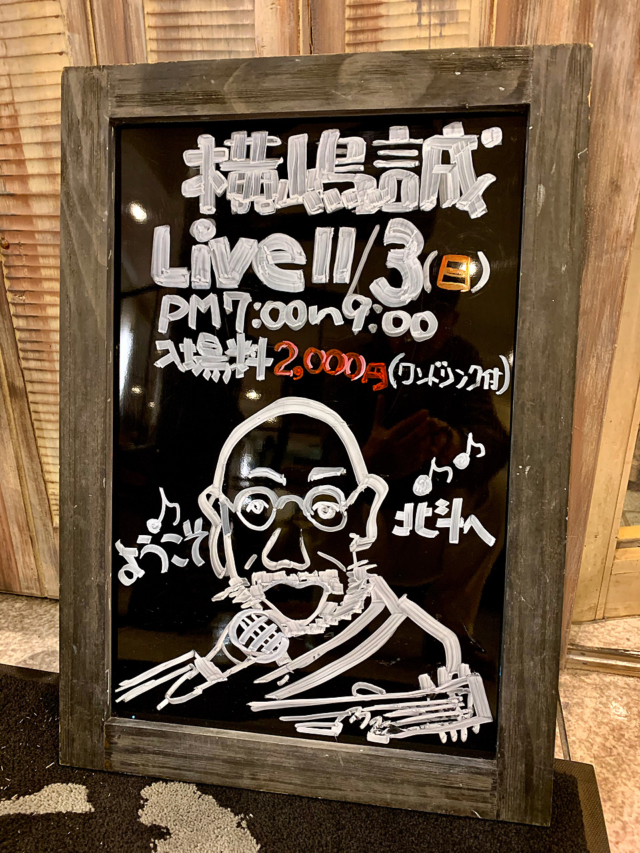 横嶋誠
Live 11/3(日)
PM7:00〜9:00
入場料2,000円(ワンドリンク付)
ようこそ
北斗へ